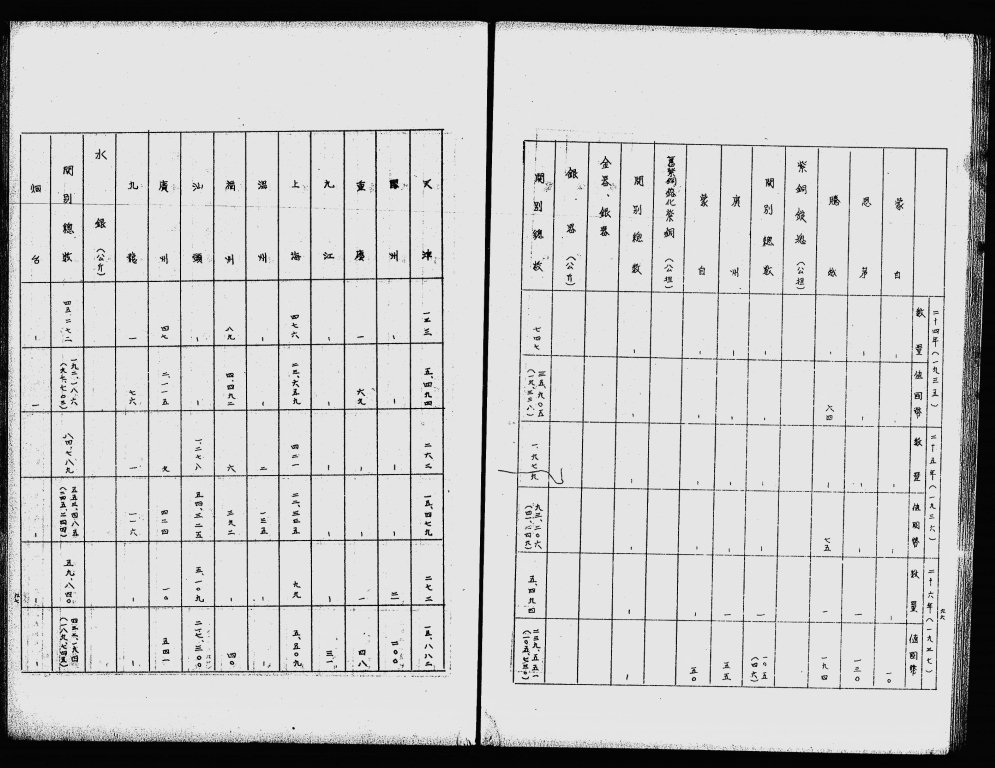 二十四年(一九三五) 二十五年(一九三六) 二十六年(一九三七)
數量 值國幣 數量 值國幣 數量 值國幣
蒙自 - - - - - 一〇
思茅 - - - - 一 一三〇
騰越 - 六四 - 七五 一 一九四
紫銅錠塊(公担)
關別總數 - - - - 一 一〇五(四六)
廣州 - - - - 一 五五
蒙自 - - - - - 五〇
舊紫銅熔化紫銅(公担)
關別總數 - - - - - -
金器、銀器
銀器(公斤)
關別總數 七四七 三五、九〇五 一、九七九 九三、二〇六 五、四九四 二三九、五五一
六六
天津 一三三 五、四九四 二六三 一五、四七九 二七二 一五、八八三
膠州 - - - - 三 二〇〇
重慶 一 六九 - - 一 四八
九江 - - - - - 三一
上海 四七六 二三、六五九 四二一 二二、三四五 九九 五、五〇九
溫州 - - 二 一三五 - -
福州 八九 四、四九二 六 三九二 - 四〇
汕頭 - - 一、二七八 五四、三二五 五、一〇九 二一七、三〇〇
廣州 四七 二、一一五 九 四二四 一〇 五四一
九龍 一 七六 一 一一六 - -
水銀(公斤)
關別總數 四五、二七二 一九二、一八六 八四、七八九 五五三、四八五 五九、八四〇
烟台 - 一 - - - -
六七